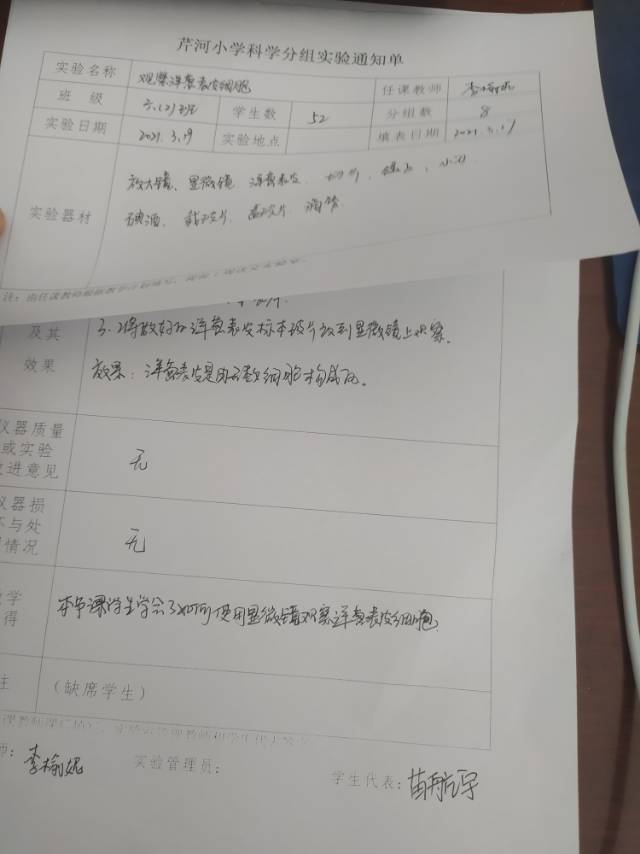 芹河小学科学分组实验通知单
实验名称 观察洋葱表皮细胞 任课教师
班 级 六.(2)班 学生数 52 分组数 8
实验日期 2021.3.19 实验地点 填表日期 2021.3.17
实验器材 放大镜、显微镜 洋葱表皮、
碘酒、载玻片、盖玻片
及其 3.将做好的洋葱表皮标本玻片放到显微镜上观察。
效果 效果:洋葱表皮是由无数细胞构成的。
仪器质量
或实验 无
进意见
仪器损
坏与处 无
情况
学 本节课学生学会了如何使用显微镜观察洋葱表皮细胞.
得
主 (缺席学生)
师: 李榆妮 实验管理员: 学生代表: 苗航宇